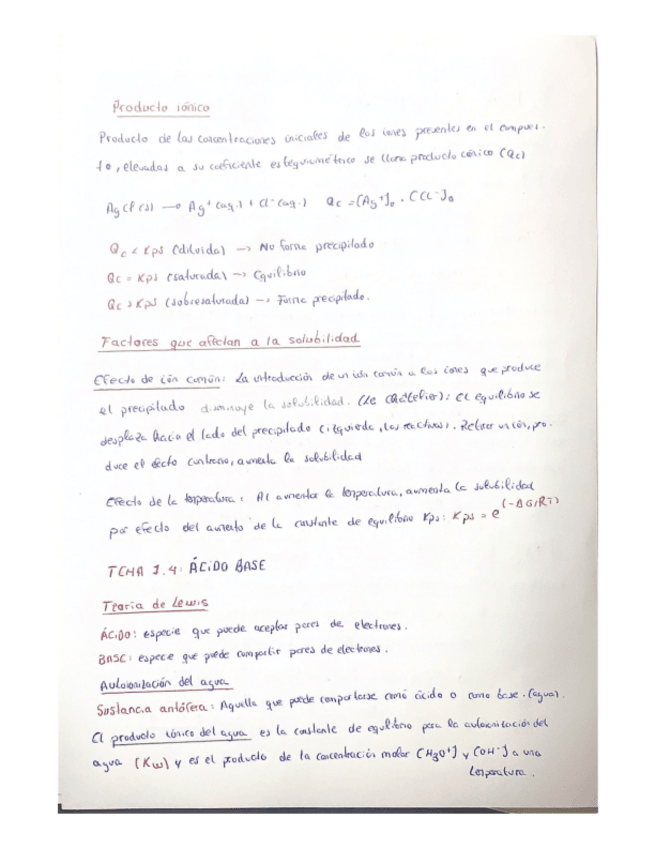 Producto iónico
Producto de las concentraciones iniciales de los iones presentes en el compues-
to, elevadas a su coeficiente estequiométrico se llama producto iónico (Qc)
AgCl (s) → Ag⁺ (aq.) + Cl⁻ (aq.) Qc = [Ag⁺]₀ · [Cl⁻]₀
Qc < Kps (diluida) → No forma precipitado
Qc = Kps (saturada) → Equilibrio
Qc > Kps (sobresaturada) → Forma precipitado.
Factores que afectan a la solubilidad
Efecto de ión común: La introducción de un ión común a los iones que produce
el precipitado disminuye la solubilidad. (Le Châtelier): El equilibrio se
desplaza hacia el lado del precipitado (izquierda, los reactivos). Retirar un ión, pro-
duce el efecto contrario, aumenta la solubilidad
Efecto de la temperatura: Al aumentar la temperatura, aumenta la solubilidad
por efecto del aumento de la constante de equilibrio Kps: Kps = e^(-ΔG/RT)
TEMA 1.4: ÁCIDO BASE
Teoría de Lewis
ÁCIDO: especie que puede aceptar pares de electrones.
BASE: especie que puede compartir pares de electrones.
Autoionización del agua
Sustancia antófera: Aquella que puede comportarse como ácido o como base. (agua).
El producto iónico del agua es la constante de equilibrio para la autoionización del
agua (Kw) y es el producto de la concentración molar [H₃O⁺] y [OH⁻] a una
temperatura.